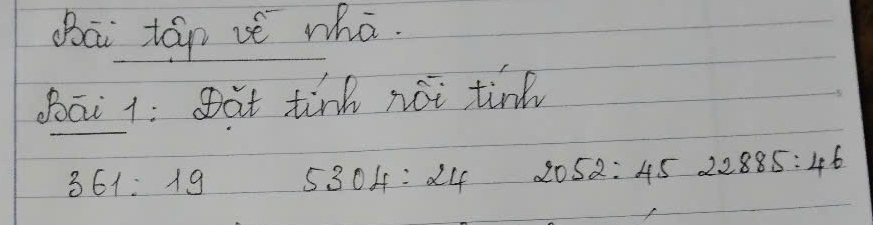 Bài tập về nhà.
Bài 1: Đặt tính rồi tính
361: 19 5304: 24 2052: 45 22885: 46